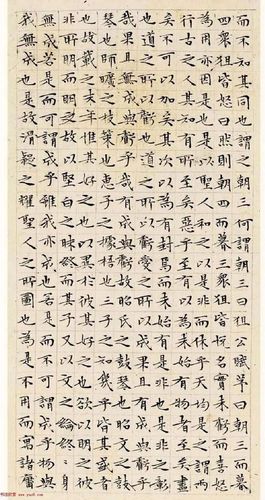 而不知其同也謂之朝三何謂朝三曰狙公賦芧曰朝三而暮
四衆狙皆怒曰然則朝四而暮三衆狙皆悦名實未虧而喜怒
為用亦因是也是以聖人和之以是非而休乎天均是之謂兩
行古之人其知有所至矣惡乎至有以為未始有物者至矣盡
矣不可以加矣其次以為有封焉而未始有是非也是非之彰
也道之所以虧也道之所以虧愛之所以成果且有成與虧
乎哉果且無成與虧乎哉有成與虧故昭氏之鼓琴也昭文之鼓
琴也師曠之枝策也惠子之據梧也三子之知幾乎皆其盛者
也故載之末年惟其好之也以異於彼其好之也欲以明之彼
非所明而明之故以堅白之昧終而其子又以文之綸終終身
無成若是而可謂成乎雖我亦成也若是而不可謂成乎物與
我無成也是故滑疑之耀聖人之所圖也為是不用而寓諸庸